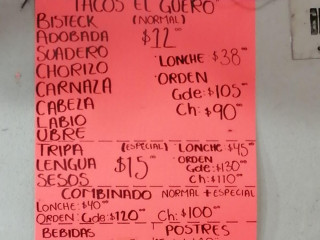 TACOS EL GÜERO
BISTECK (NORMAL)
ADOBADA $12
SUADERO LONCHE $38
CHORIZO ORDEN
CARNAZA Gde: $105
CABEZA Ch: $90
LABIO
UBRE
TRIPA (ESPECIAL) LONCHE $45
LENGUA $15 ORDEN
SESOS Gde: $130
Ch: $110
COMBINADO NORMAL + ESPECIAL
LONCHE: $40
ORDEN: Gde: $120 Ch: $100
BEBIDAS POSTRES